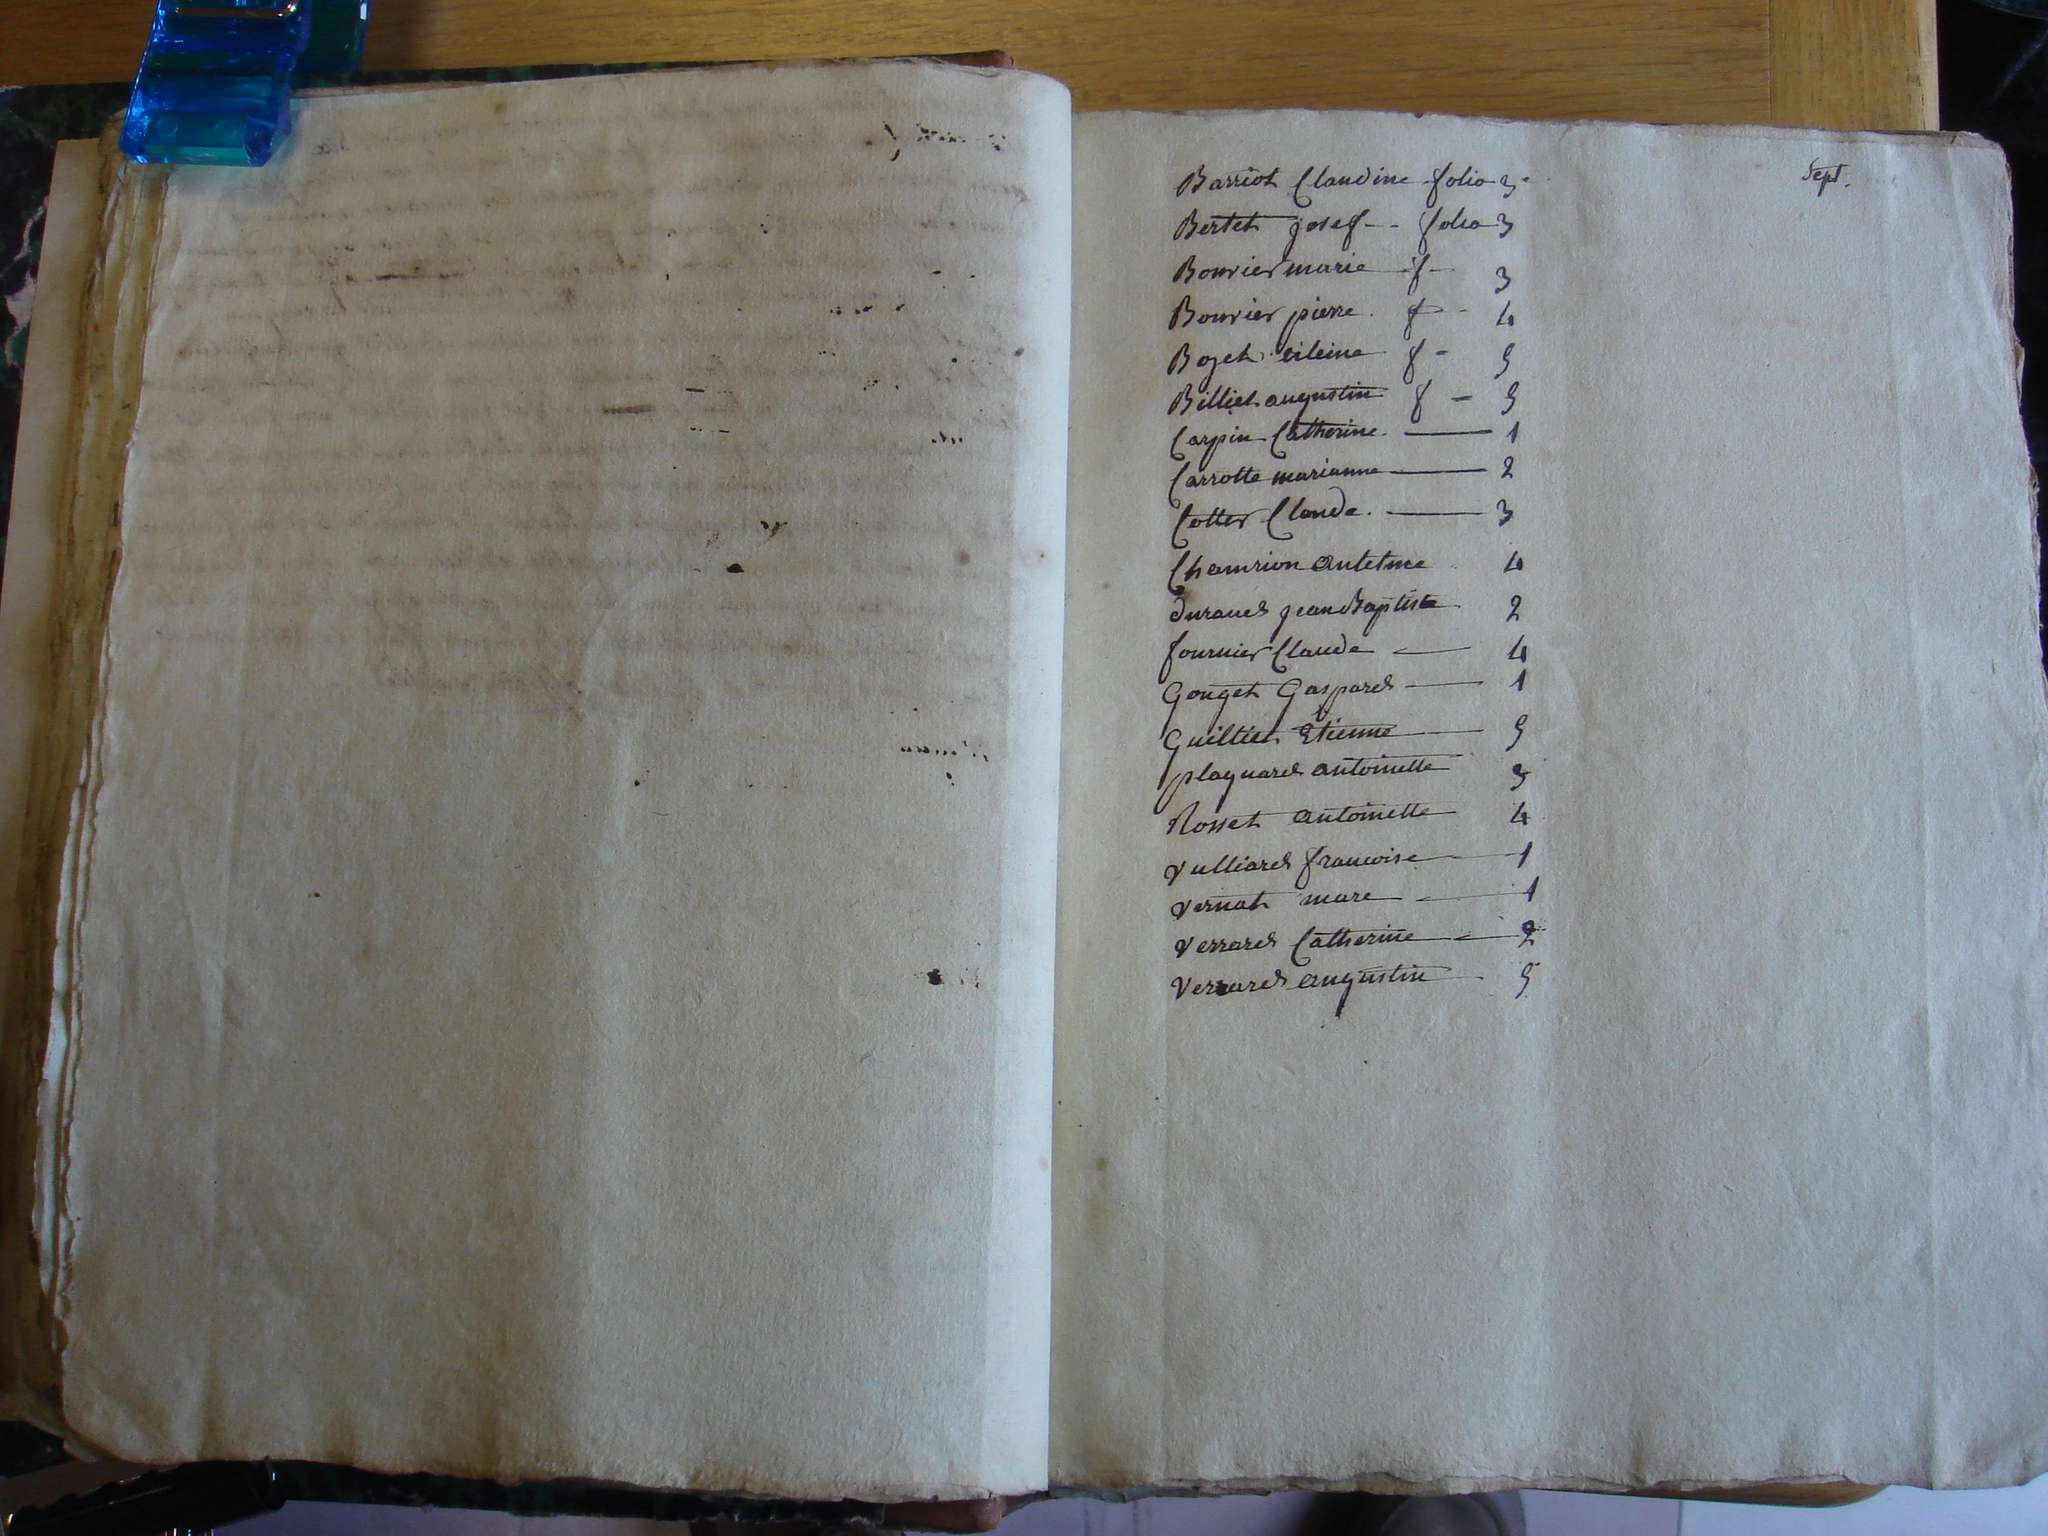 Sept.
Barriot Claudine folio 3
Bertet josef -- folio 3
Bouvier marie f - 3
Bouvier pierre. f - 4
Bozet f - 5
Billiet augustin f - 5
Carpin Catherine. — 1
Carrotte marianne — 2
Cotter Claude. — 3
Chamrion antelme 4
durand jean Baptiste 2
fournier Claude — 4
Gouget Gaspard — 1
Guilliet Etienne — 5
plagnard antoinette 3
Rosset antoinette 4
vulliard francoise — 1
vernat marc — 1
verrard Catherine — 2
Verrard augustin — 5